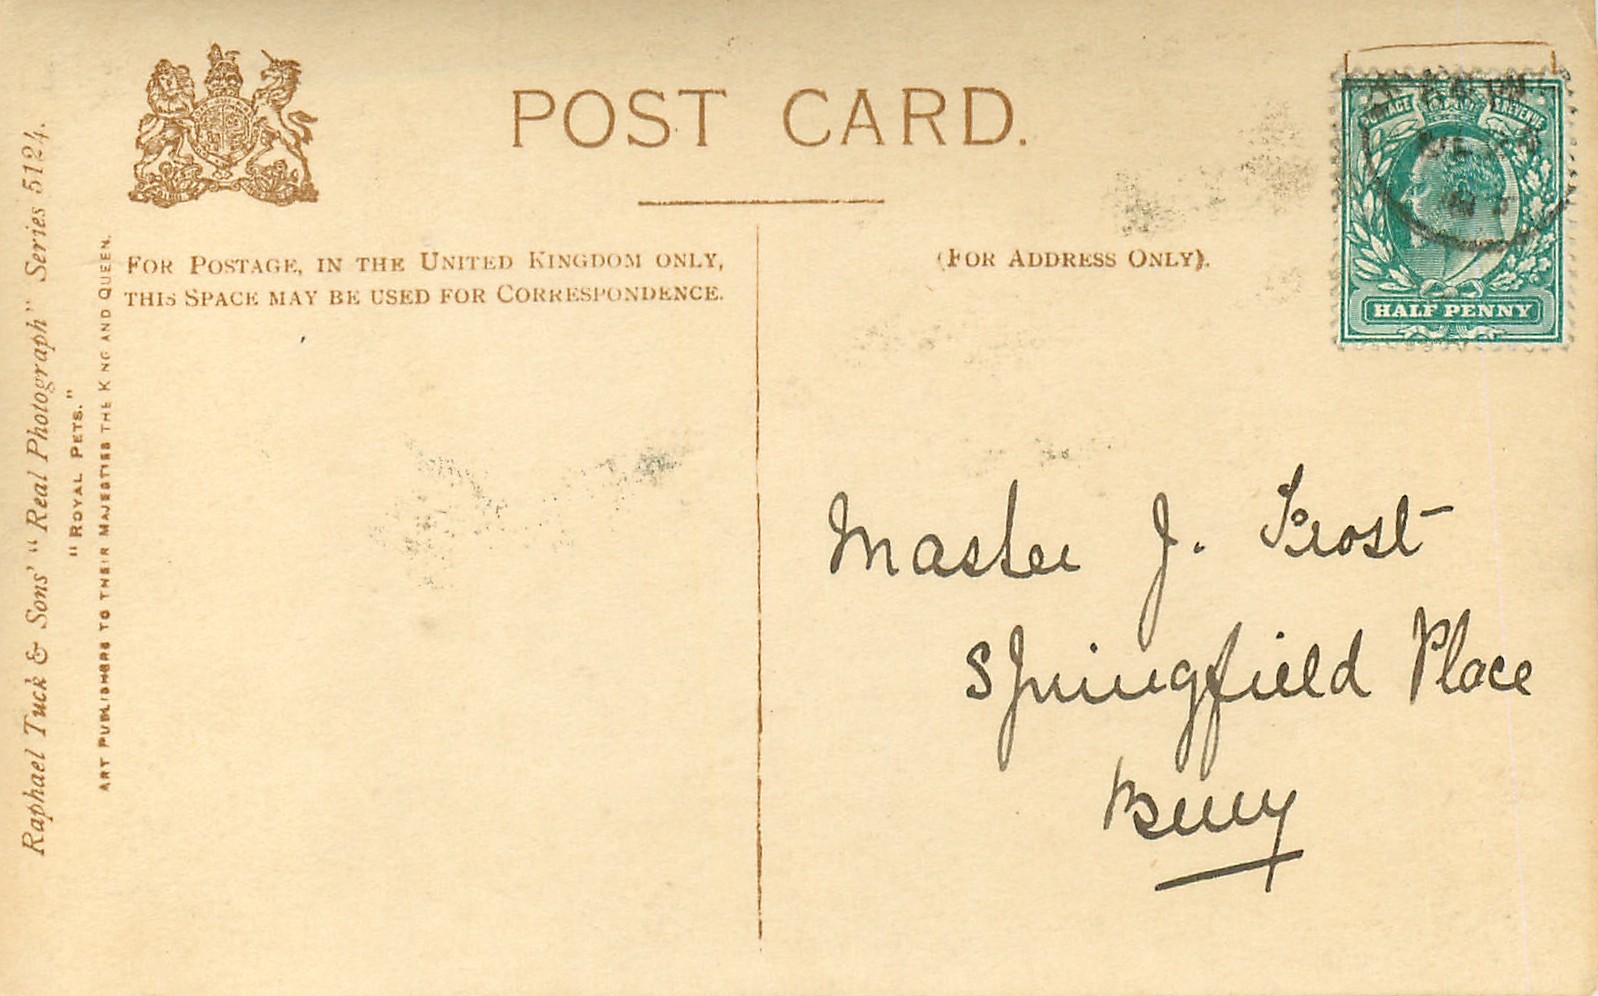 POST CARD.
FOR POSTAGE, IN THE UNITED KINGDOM ONLY,
THIS SPACE MAY BE USED FOR CORRESPONDENCE.
(FOR ADDRESS ONLY).
Raphael Tuck & Sons' "Real Photograph" Series 5124.
"ROYAL PETS."
ART PUBLISHERS TO THEIR MAJESTIES THE KING AND QUEEN.
POSTAGE REVENUE
HALF PENNY
Master J. Frost
Springfield Place
Bury